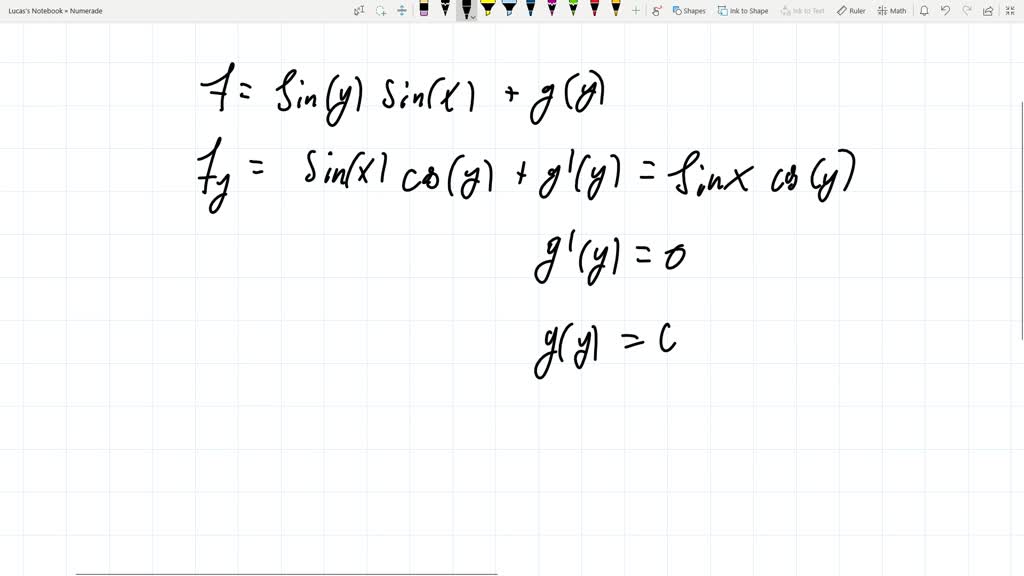 Lucas's Notebook » Numerade
Shapes Ink to Shape Ink to Text Ruler Math
f = sin(y) sin(x) + g(y)
f_y = sin(x) cos(y) + g'(y) = sin x cos(y)
g'(y) = 0
g(y) = C